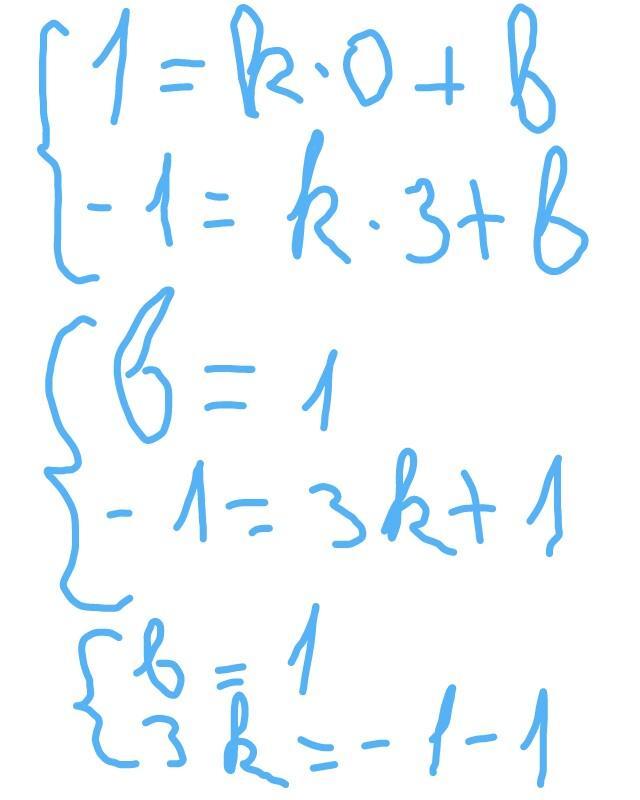 1 = k · 0 + b
- 1 = k · 3 + b
b = 1
- 1 = 3k + 1
b = 1
3k = - 1 - 1